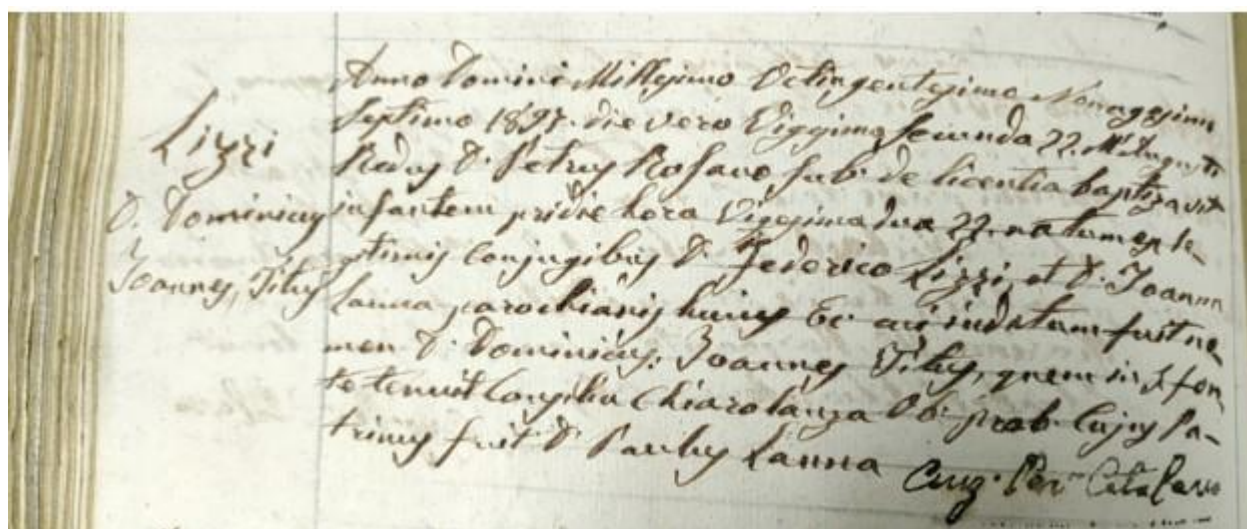 Lizzi
D. Dominicus
Joannes, Titus
Anno Domini Millesimo Octingentesimo Nonagesimo
Septimo 1897. die vero Vigesima secunda 22. M. Augusti
Redus D. Petrus Rofano sub. de licentia baptizavit
infantem pridie hora Vigesima dua 22. natum ex le-
gitimis Conjugibus D. Federico Lizzi, et D. Joanna
Lanna parochianis hujus Ec. cui inditum fuit no-
men D. Dominicus. Joannes Titus, quem in S. fon-
te tenuit Conzilia Chiarolanza Ob. prob. Cujus Pa-
trinus fuit D. Paulus Lanna